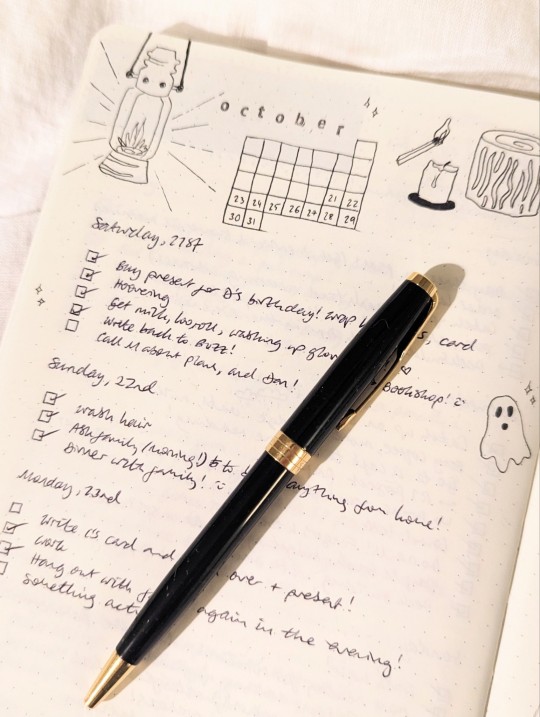 october
21 22
23 24 25 26 27 28 29
30 31
Saturday, 21st
Buy present for D's birthday! Wrap, card
Hoovering
Get milk, washing up Bookshop!
Write back to Buzz!
Call M about plans, and Dan!
Sunday, 22nd
wash hair
Ask family (moving!) to anything from home!
Dinner with family!
Monday, 23rd
Write C's card and over + present!
work
Hang out with
Something again in the evening!